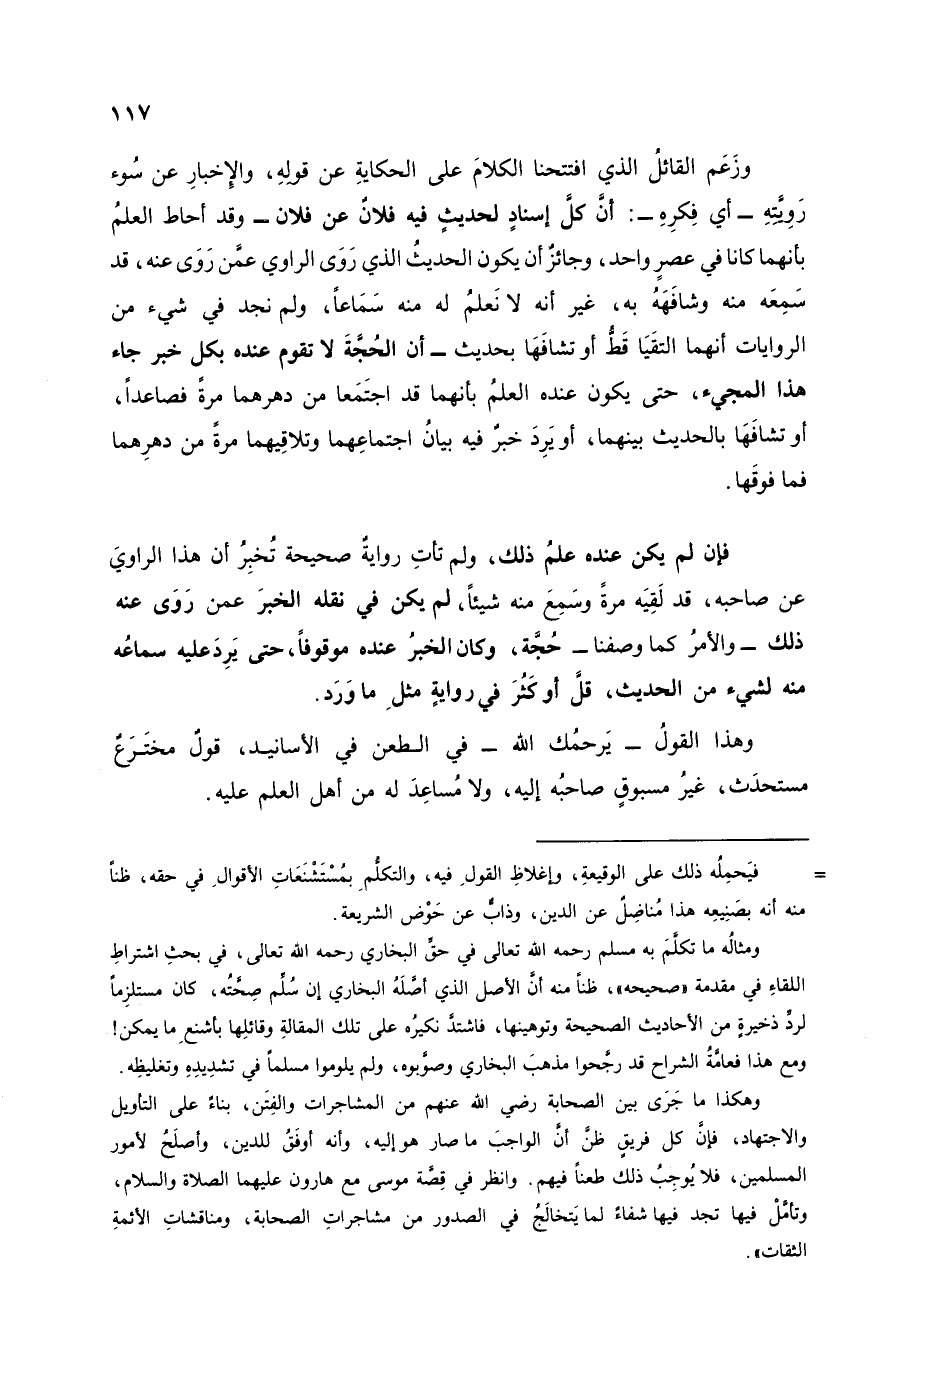 ١١٧
وزَعَم القائلُ الذي افتتحنا الكلامَ على الحكايةِ عن قولِهِ، والإِخبارِ عن سُوء
رَوِيَّتِهِ ــ أي فِكرِهِ ــ: أنَّ كلَّ إسنادٍ لحديثٍ فيه فلانٌ عن فلان ــ وقد أحاط العلمُ
بأنهما كانا في عصرٍ واحد، وجائزٌ أن يكون الحديثُ الذي رَوَى الراوي عمَّن رَوَى عنه، قد
سَمِعَه منه وشافَهَهُ به، غير أنه لا نَعلمُ له منه سَمَاعاً، ولم نجد في شيء من
الروايات أنهما التقَيَا قَطُّ أو تشافَهَا بحديث ــ أن الحُجَّةَ لا تقوم عنده بكل خبر جاء
هذا المجيء، حتى يكون عنده العلمُ بأنهما قد اجتَمَعا من دهرهما مرةً فصاعداً،
أو تشافَهَا بالحديث بينهما، أو يَرِدَ خبرٌ فيه بيانُ اجتماعِهما وتلاقِيهما مرةً من دهرِهما
فما فوقَها.
فإن لم يكن عنده علمُ ذلك، ولم تأتِ روايةٌ صحيحة تُخبِرُ أن هذا الراويَ
عن صاحبه، قد لَقِيَه مرةً وسَمِعَ منه شيئاً، لم يكن في نقله الخبرَ عمن رَوَى عنه
ذلك ــ والأمرُ كما وصفنا ــ حُجَّة، وكان الخبرُ عنده موقوفاً، حتى يَرِدَ عليه سماعُه
منه لشيء من الحديث، قلَّ أو كَثُرَ في روايةٍ مثلِ ما وَرَد.
وهذا القولُ ــ يَرحمُك الله ــ في الـطعن في الأسانيـد، قولٌ مختَـرَعٌ
مستحدَث، غيرُ مسبوقٍ صاحبُه إليه، ولا مُساعِدَ له من أهل العلم عليه.
= فيَحمِلُه ذلك على الوقيعةِ، وإغلاظِ القولِ فيه، والتكلُّمِ بمُسْتَشْنَعَاتِ الأقوالِ في حقه، ظناً
منه أنه بصَنِيعِه هذا مُناضِلٌ عن الدين، وذابٌّ عن حَوْض الشريعة.
ومثالُه ما تكلَّمَ به مسلم رحمه الله تعالى في حقِّ البخاري رحمه الله تعالى، في بحثِ اشتراطِ
اللقاءِ في مقدمة «صحيحه»، ظناً منه أنَّ الأصل الذي أصَّلَهُ البخاري إن سُلِّم صِحَّتُه، كان مستلزِماً
لردِّ ذخيرةٍ من الأحاديث الصحيحة وتوهينها، فاشتدَّ نكيرُه على تلك المقالةِ وقائلِها بأشنعِ ما يمكن!
ومع هذا فعامَّةُ الشراح قد رجَّحوا مذهبَ البخاري وصوَّبوه، ولم يلوموا مسلماً في تشدِيدِهِ وتغليظِه.
وهكذا ما جَرَى بين الصحابة رضي الله عنهم من المشاجرات والفِتَن، بناءً على التأويل
والاجتهاد، فإنَّ كل فريقٍ ظنَّ أنَّ الواجبَ ما صار هو إليه، وأنه أوفَقُ للدين، وأصلَحُ لأمور
المسلمين، فلا يُوجِبُ ذلك طعناً فيهم. وانظر في قِصَّة موسى مع هارون عليهما الصلاة والسلام،
وتأمَّلْ فيها تجد فيها شفاءً لما يَتخالَجُ في الصدور من مشاجراتِ الصحابة، ومناقشاتِ الأئمةِ
الثقات».